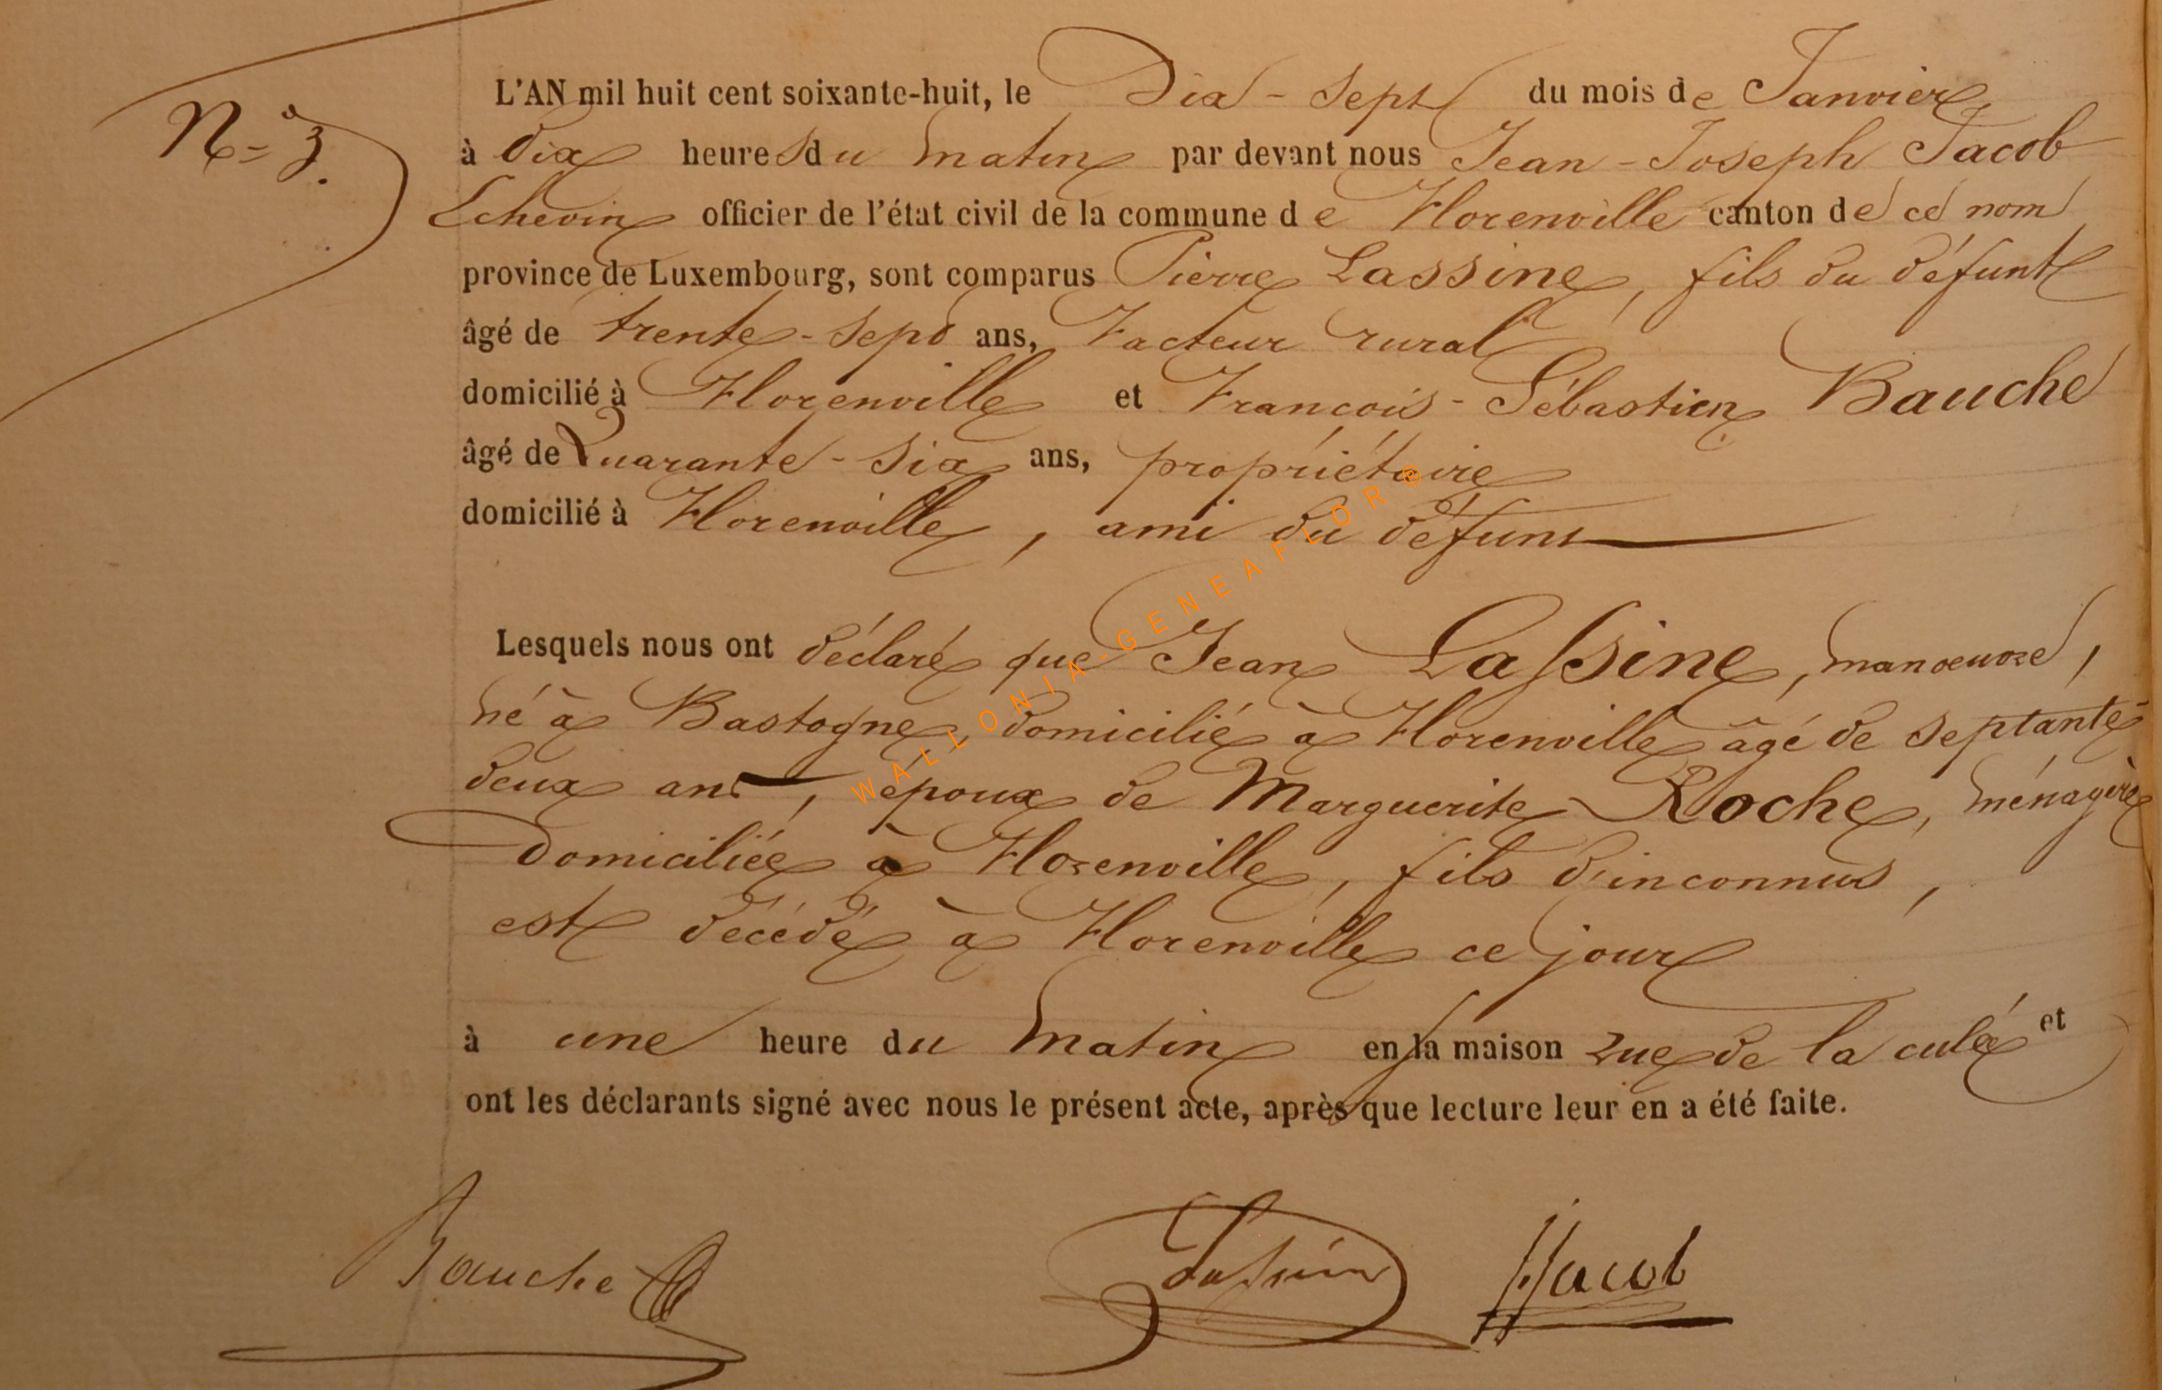 N° 3.
L'AN mil huit cent soixante-huit, le Dix-Sept du mois de Janvier
à dix heures du matin par devant nous Jean-Joseph Jacob
Echevin officier de l'état civil de la commune de Florenville canton de ce nom
province de Luxembourg, sont comparus Pierre Lassine, fils du défunt
âgé de trente-sept ans, Facteur rural
domicilié à Florenville et François-Sébastien Bauche
âgé de Quarante-Six ans, propriétaire
domicilié à Florenville, ami du défunt
Lesquels nous ont déclaré que Jean Lassine, manoeuvre,
né à Bastogne, domicilié à Florenville âgé de septante-
deux ans, époux de Marguerite Roche, ménagère
domiciliée à Florenville, fils d'inconnus,
est décédé à Florenville ce jour
à une heure du matin en sa maison rue de la culée et
ont les déclarants signé avec nous le présent acte, après que lecture leur en a été faite.
Bauche Lassine JJacob
WALLONIA-GENEAFLOR®